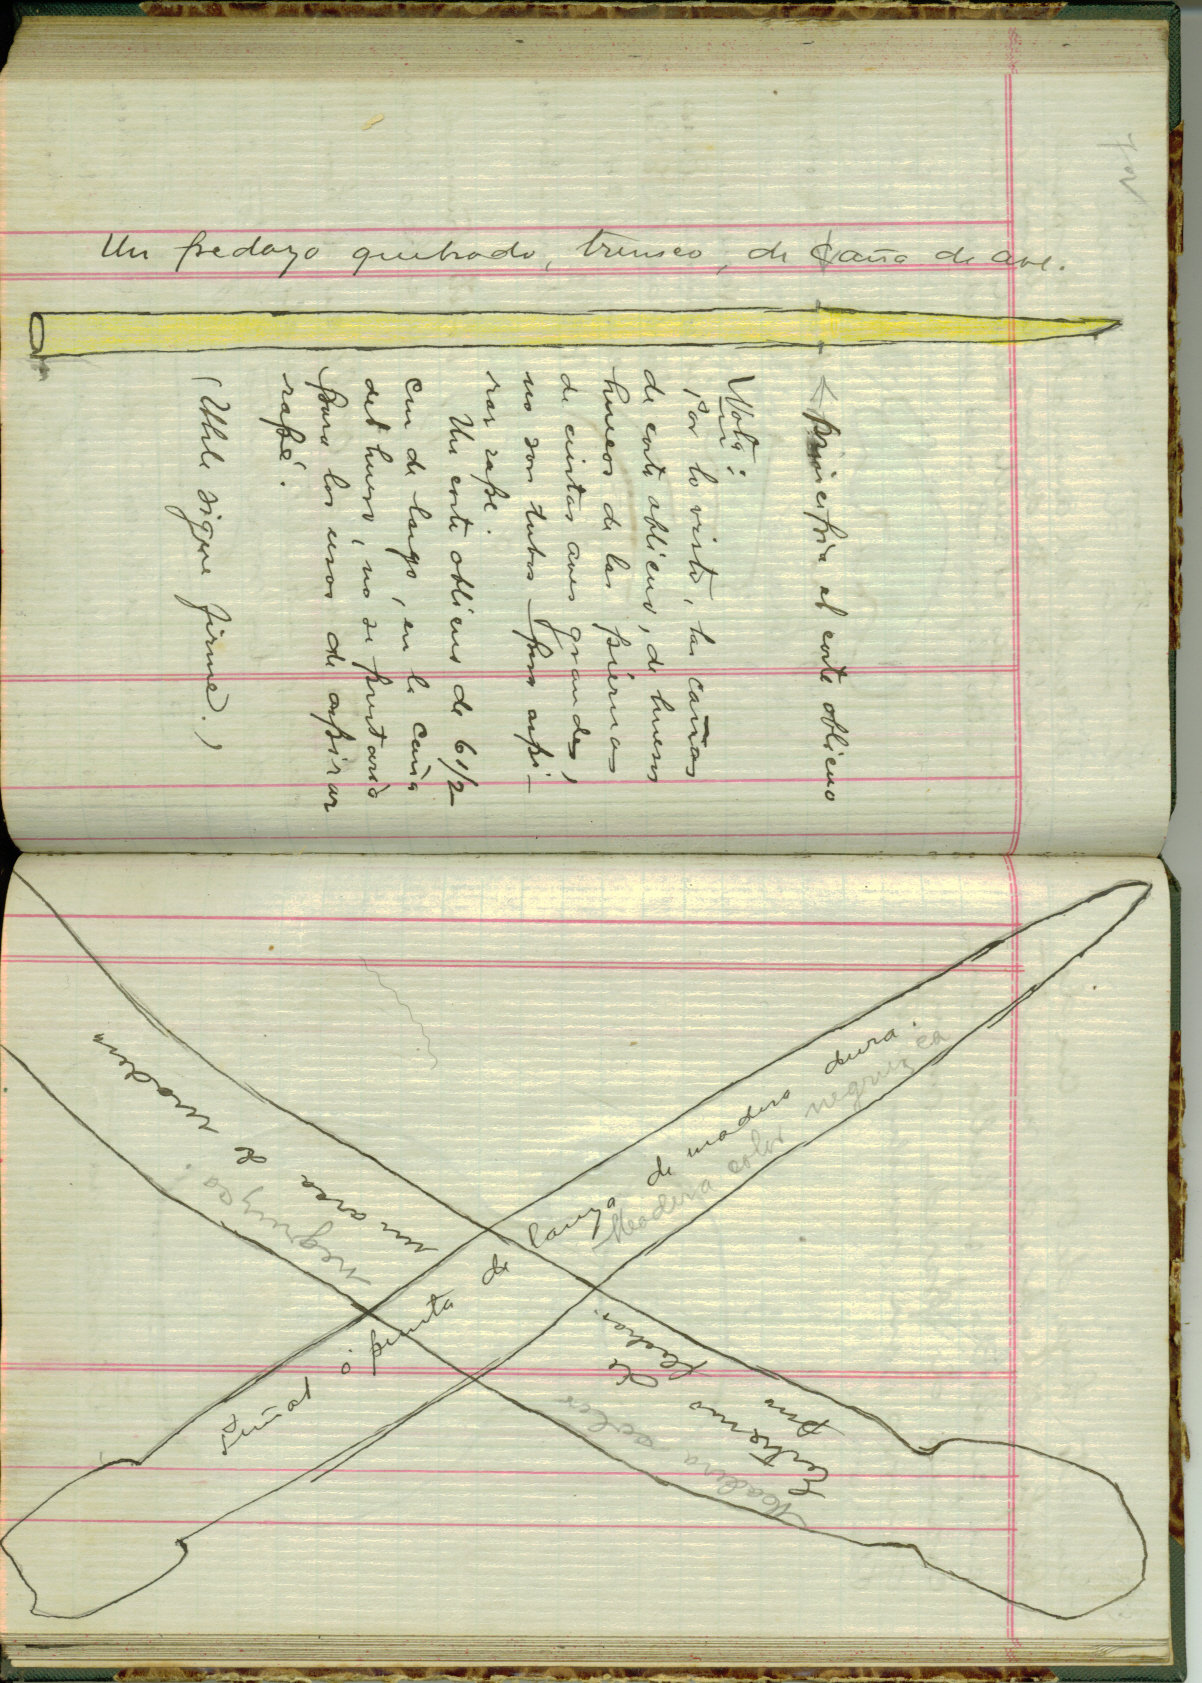 Un pedazo quebrado, trunco, de caña de ave.
← principia el corte oblicuo
Nota:
Por lo visto, las cañas
de corte oblicuo, de huesos
huecos de las piernas
de ciertas aves grandes,
no son tubos para aspi-
rar rapé.
Un corte oblicuo de 6 1/2
cm de largo, en la caña
del hueso, no se prestaria
para los usos de aspirar
rapé.
(Uhle sigue firme.)
Puñal ó punta de lanza de madera dura.
Madera color negruzca
Extremo de
un arco de madera
para flechas.
Madera color
negruzca.